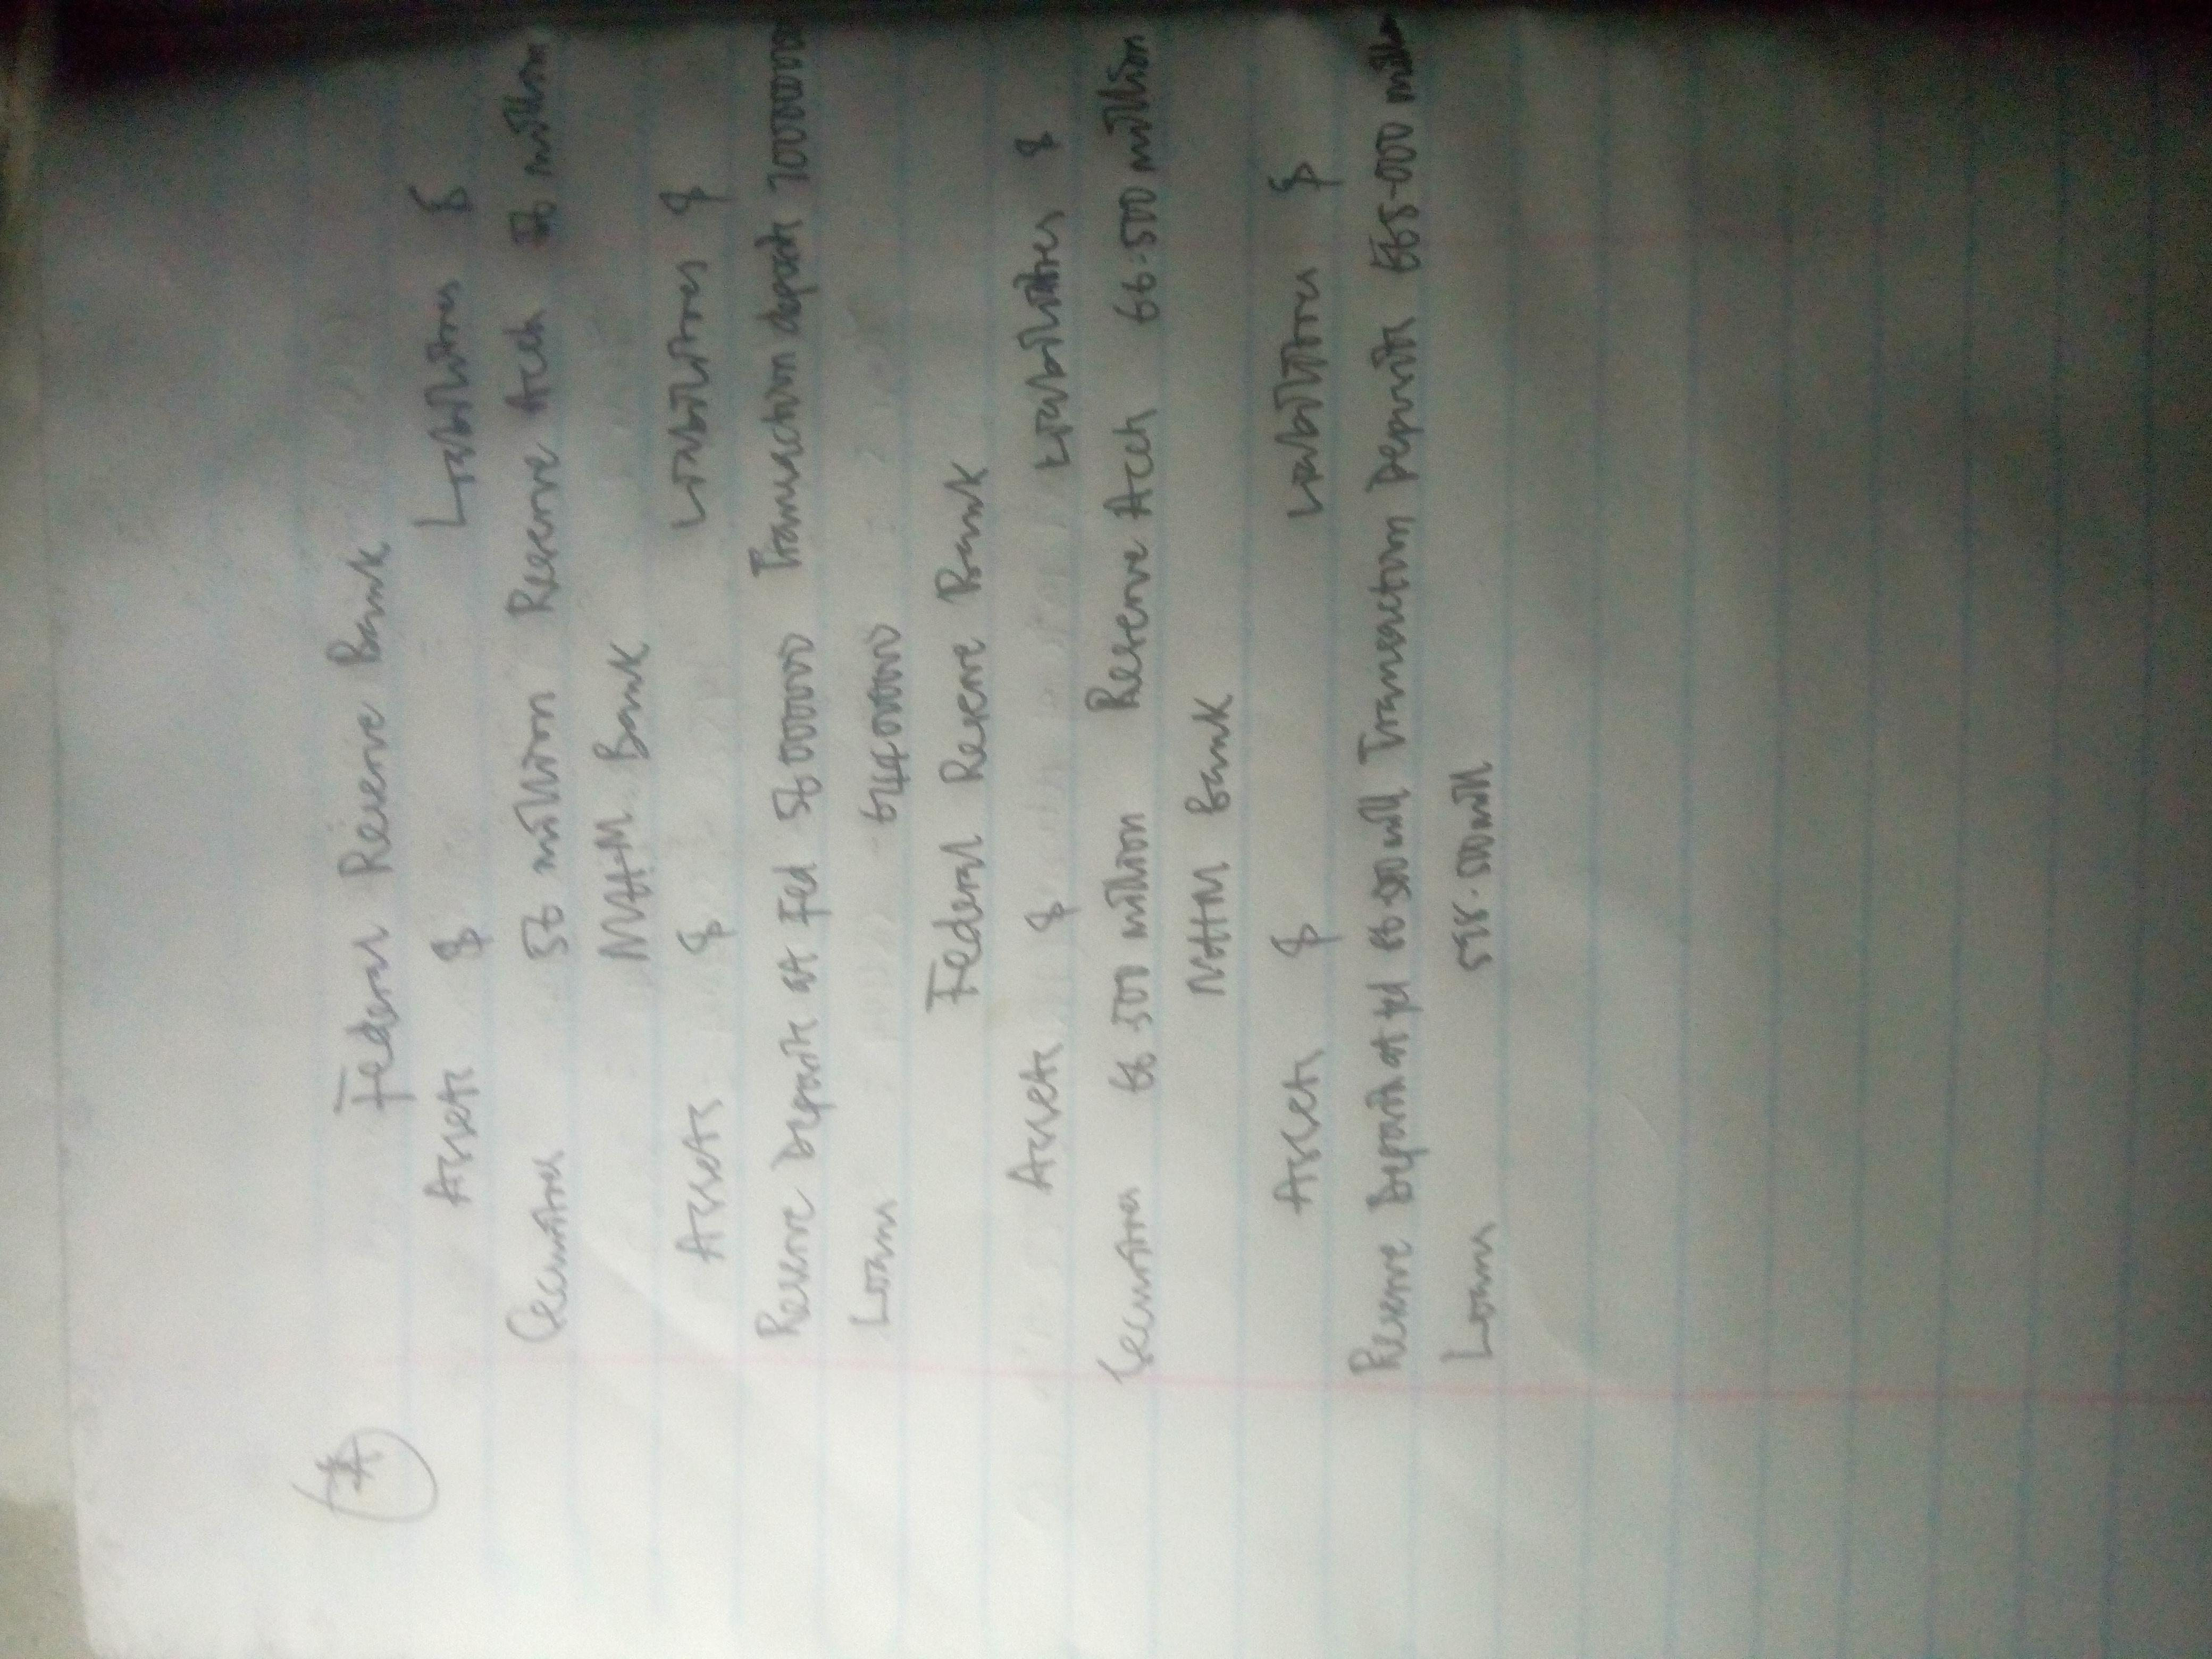 A
Federal Reserve Bank
Assets $ Liabilities $
Securities 56 million Reserve Acct 56 million
MHM Bank
Assets $ Liabilities $
Reserve Deposits at Fed 56000000 Transaction deposits
Loans 644000000
Federal Reserve Bank
Assets $ Liabilities $
Securities 66.500 million Reserve Acct 66.500 million
MHM Bank
Assets $ Liabilities $
Reserve Deposits at fed 66.500 mill Transaction Deposits
Loans